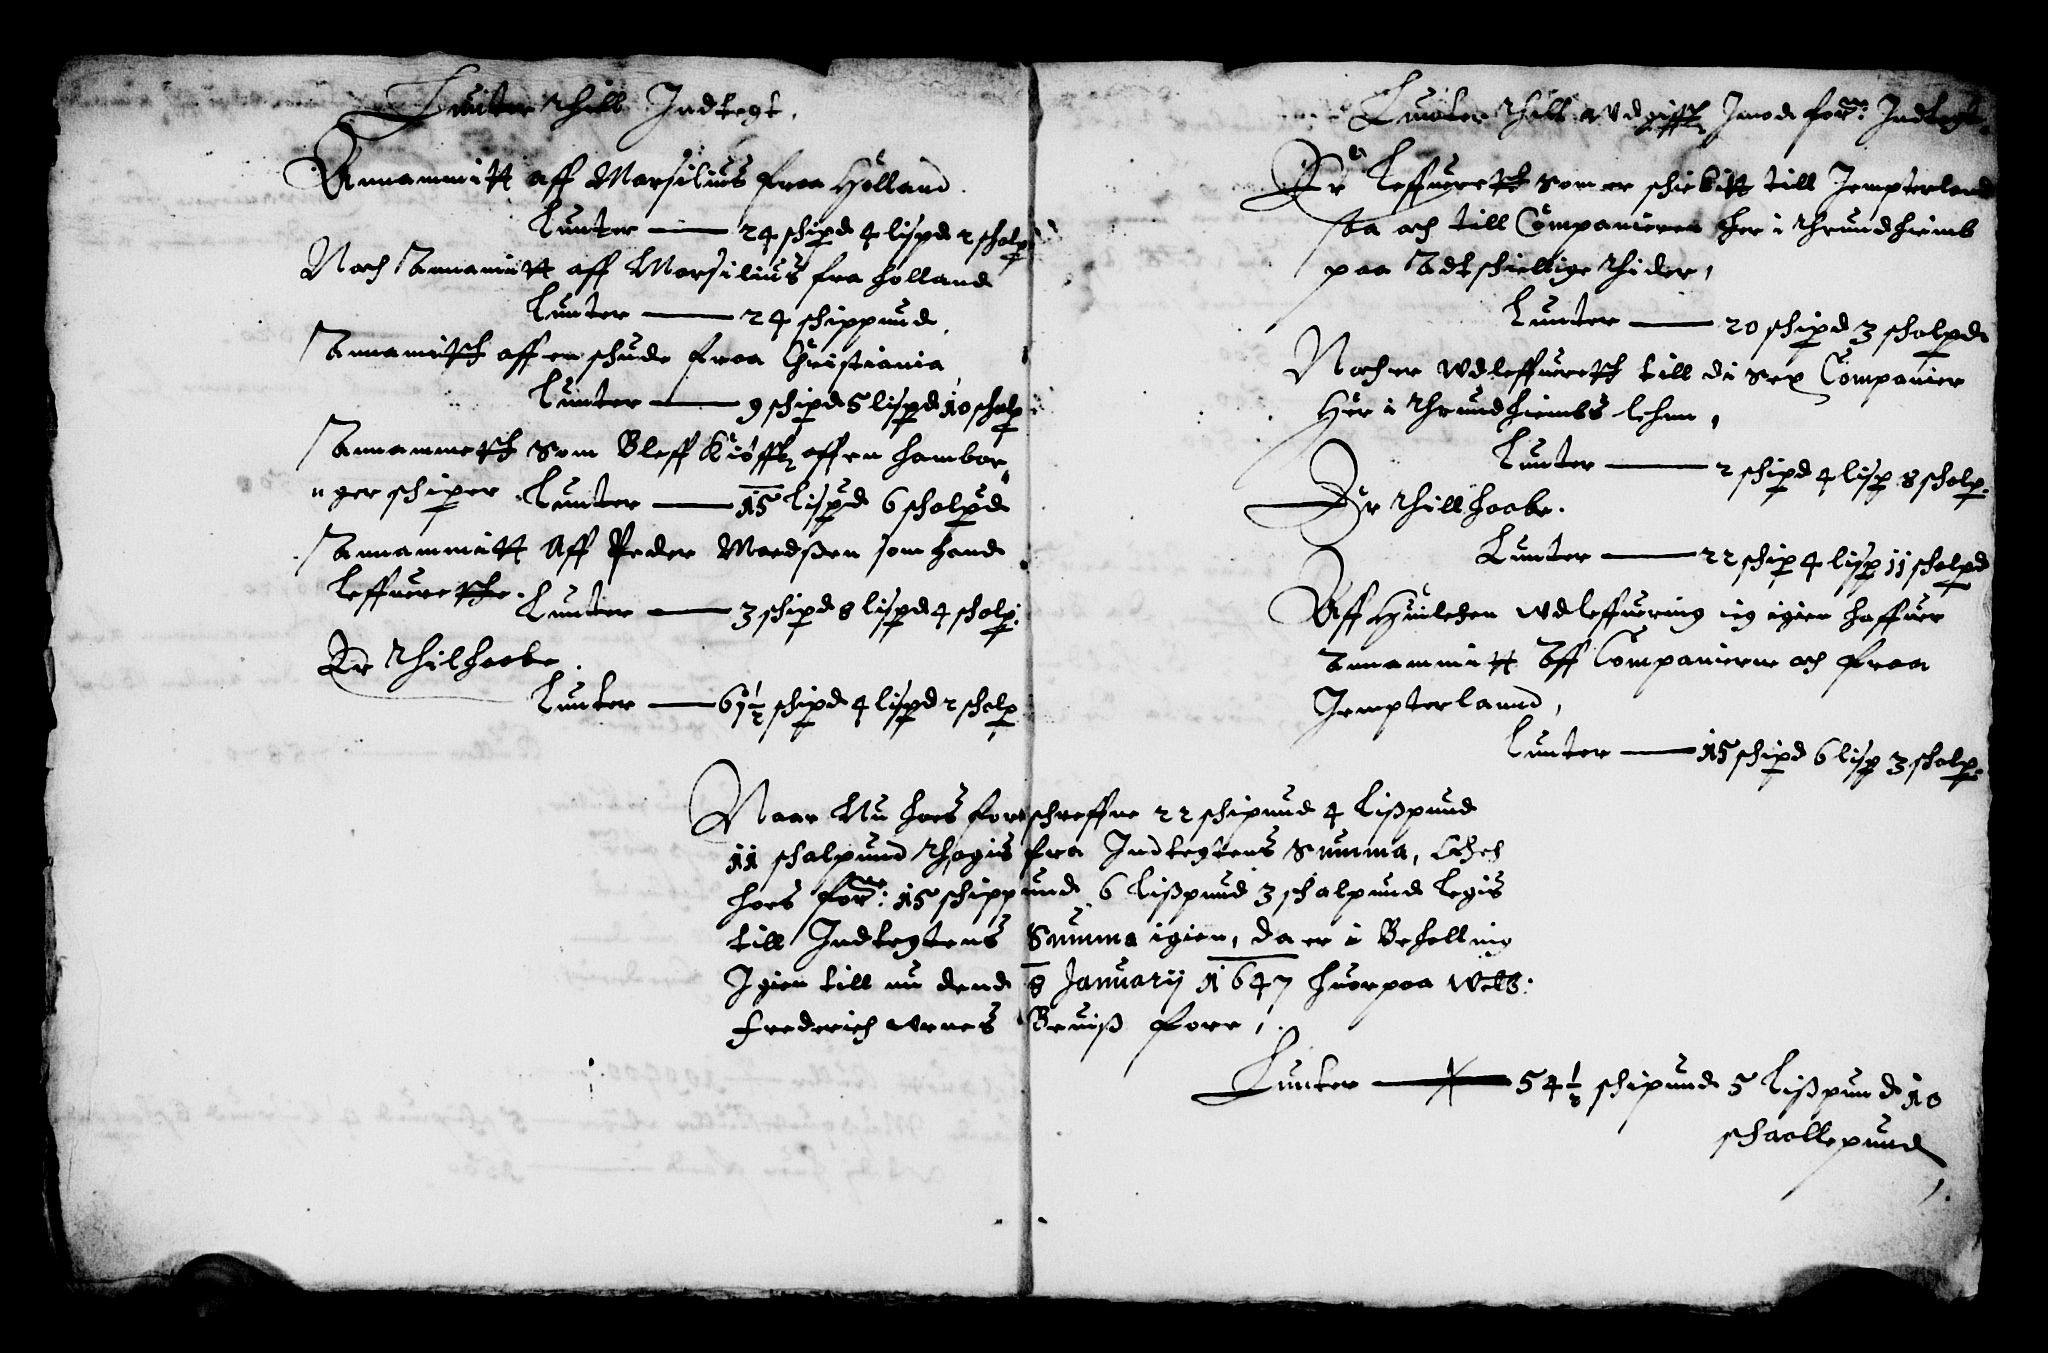 Lunter thill Indtegt.
Annammitt aff Marsilius fraa Holland
Lunter — 24 schipd 4 lispd 2 schalp
Noch Annamitt aff Marsilius fra Holland
Lunter — 24 schippund
Annamitt aff en schude fraa Christiania
Lunter — 9 schipd 5 lispd 10 schalp
Annammett som Bleff Kiøfft aff en hambor
"ger schiper. Lunter — 15 lispd 6 schalpd
Annammitt Aff Peder Madsßen som hand
leffuerette. Lunter — 3 schipd 8 lispd 4 schalp:
Er thilhaabe.
Lunter — 61½ schipd 4 lispd 2 schalp
Lunter thill udgifft Imod for: Indtegt.
Er leffueret som er schickitt till Jempterland
saa och till Companierne her i Thrundhiemb
paa Adtschiellige thider,
Lunter — 20 schipd 3 schalpd
Noch er udleffuerett till di sex Companier
Her i Thrundhiembs lehn,
Lunter — 2 schipd 4 lisp 8 schalp.
Er thillhaabe.
Lunter — 22 schip 4 lisp 11 schalpd
Aff Huilchen udleffuering ieg igien haffuer
Annammitt Aff Companierne och fraa
Jempterlannd,
Lunter — 15 schipd 6 lisp 3 schalp.
Naar Nu hoes forschreffne 22 schipund 4 Lißpund
11 schalpund thagis fra Indtegtens Summa, och
hoes for: 15 schippund 6 Lißpund 3 schalpund legis
till Indtegtens Summa igien, da er i Beholling
Igien till nu dend 8 January 1647 huorpaa Welb:
Frederich Urnes Beuiß fore,
Lunter — 54½ schipund 5 Lißpund 10
schaallepund